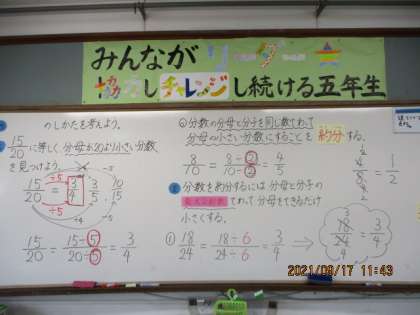 みんなが リーダー
協力し チャレンジし続ける五年生
のしかたを考えよう。
15/20 に等しく、分母が20より小さい分数
を見つけよう。
15/20 = 3/4
÷5
÷5
15/20 = 15÷5/20÷5 = 3/4
分数の分母と分子を同じ数でわって
分母の小さい分数にすることを 約分する。
8/10 = 8÷2/10÷2 = 4/5
分数を約分するには 分母と分子の
最大公約数 でわって 分母をできるだけ
小さくする。
① 18/24 = 18÷6/24÷6 = 3/4
18/24 = 3/4
4/8 = 1/2
2021/09/17 11:43